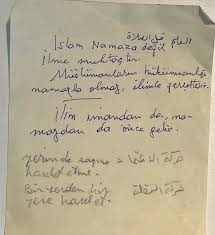 İslam Namaza değil
ilme muhtaçtır.
Müslümanların hükümranlığı
namazla olmaz, ilimle gerçekleşir.
İlim imandan da, na-
mazdan da önce gelir.
yerinde sayma
hareket etme.
Bir yerden bir
yere hareket.